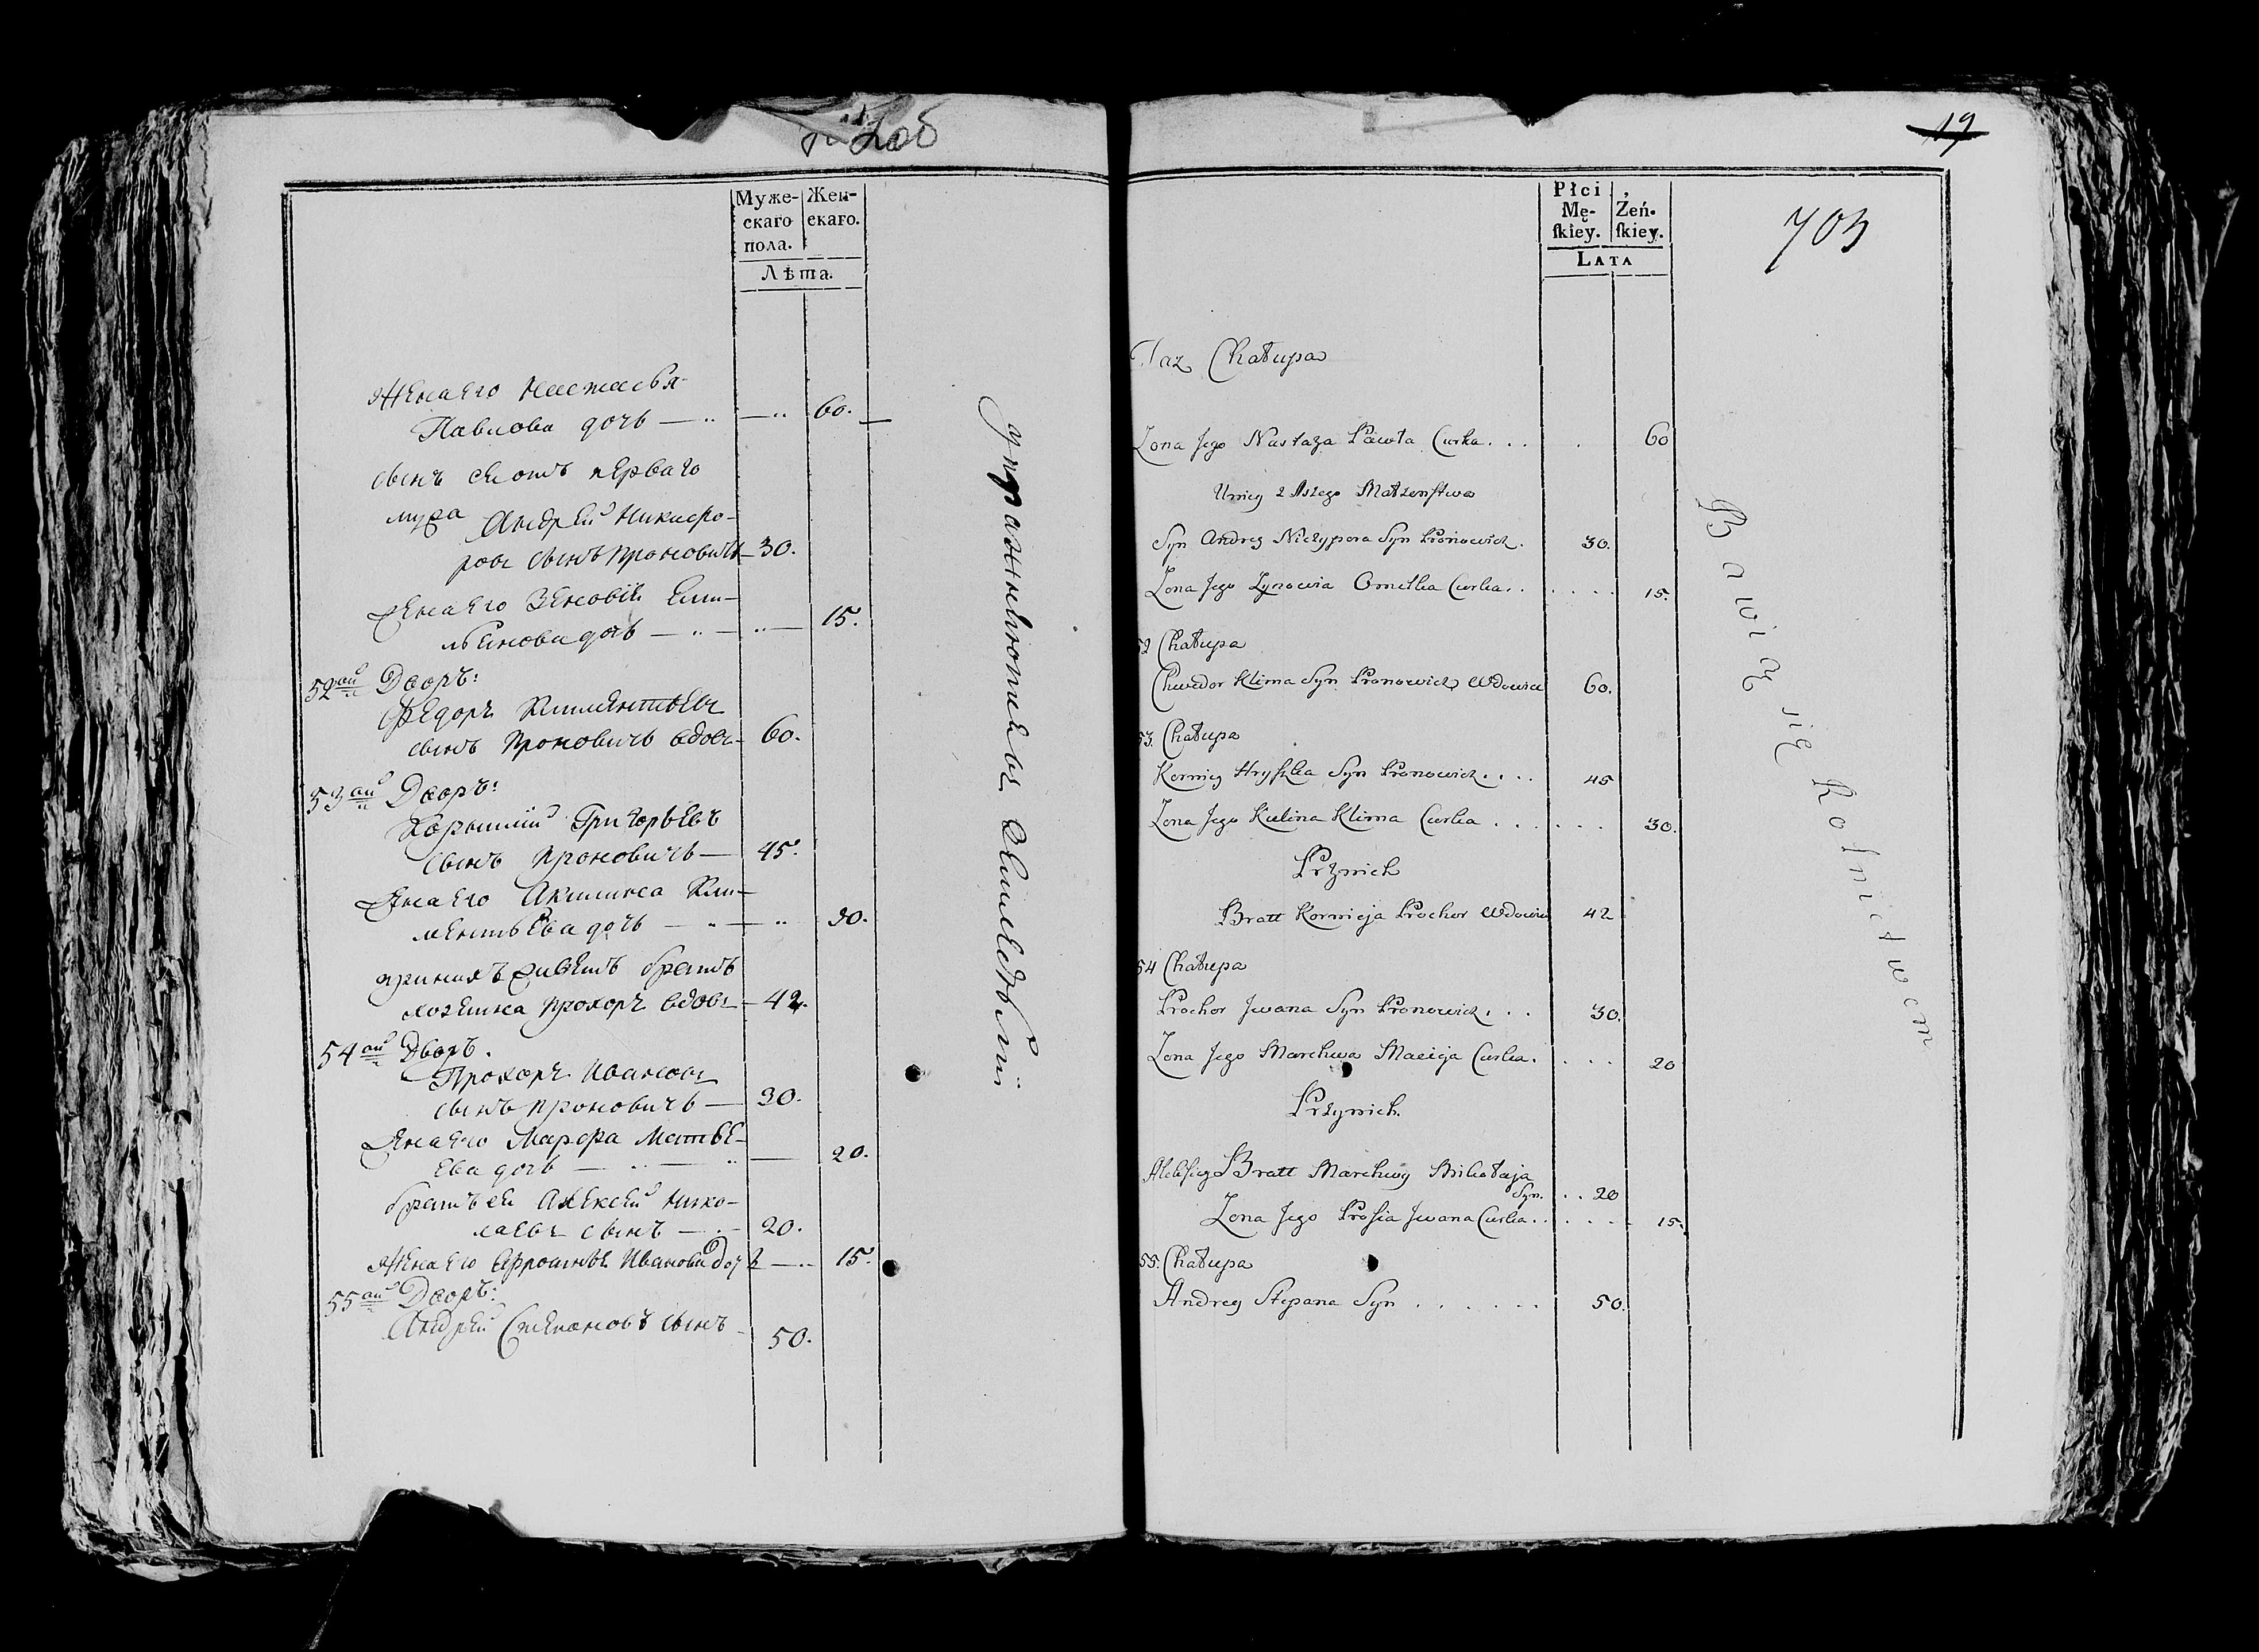 Муже-
скаго
пола.
Жен-
скаго.
Лѣта.
Жена его Настасья
Павлова дочь — 60.
сынъ ея отъ перваго
мужа Андрей Никифо-
ровъ сынъ Проновичъ — 30.
Жена его Зеновія Еми-
льянова дочь — 15.
52ой Дворъ:
Федоръ Климентьевъ
сынъ Проновичъ вдовъ — 60.
53ой Дворъ:
Корнилій Григорьевъ
сынъ Проновичъ — 45.
Жена его Акилина Кли-
ментьева дочь — 30.
при нихъ живетъ братъ
хозяина Прохоръ вдовъ — 42.
54ой Дворъ.
Прохоръ Ивановъ
сынъ Проновичъ — 30.
Жена его Марфа Матвѣ-
ева дочь — 20.
братъ ея Алексей Нико-
лаевъ сынъ — 20.
Жена его Афросинья Иванова дочь — 15.
55ой Дворъ:
Андрей Степановъ сынъ — 50.
упражняются въ земледѣліи
19
703
Płci
Mę-
ſkiey.
Żeń-
ſkiey.
LATA
Taz Chałupa
Zona Jego Nastaza Pawła Curka . . . 60
Uniey z 1szego Małzenstwa
Syn Andrey Niczypora Syn Pronowicz . 30.
Zona Jego Zynowia Omelka Curka . . 15.
52 Chałupa
Chwedor Klima Syn Pronowicz Wdowiec 60.
53. Chałupa
Korniey Hryszka Syn Pronowicz . . . 45
Zona Jego Kulina Klima Curka . . . 30.
Przynich
Bratt Kornieja Prochor Wdowiec 42
54 Chałupa
Prochor Jwana Syn Pronowicz . . . 30.
Zona Jego Marchwa Macieja Curka . . . 20
Przynich.
Aleksiey Bratt Marchwy Mikołaja
Syn. . . 20
Zona Jego Prosia Jwana Curka . . . 15.
55. Chałupa
Andrey Stepana Syn . . . . . . 50.
Bawią się Rolnictwem